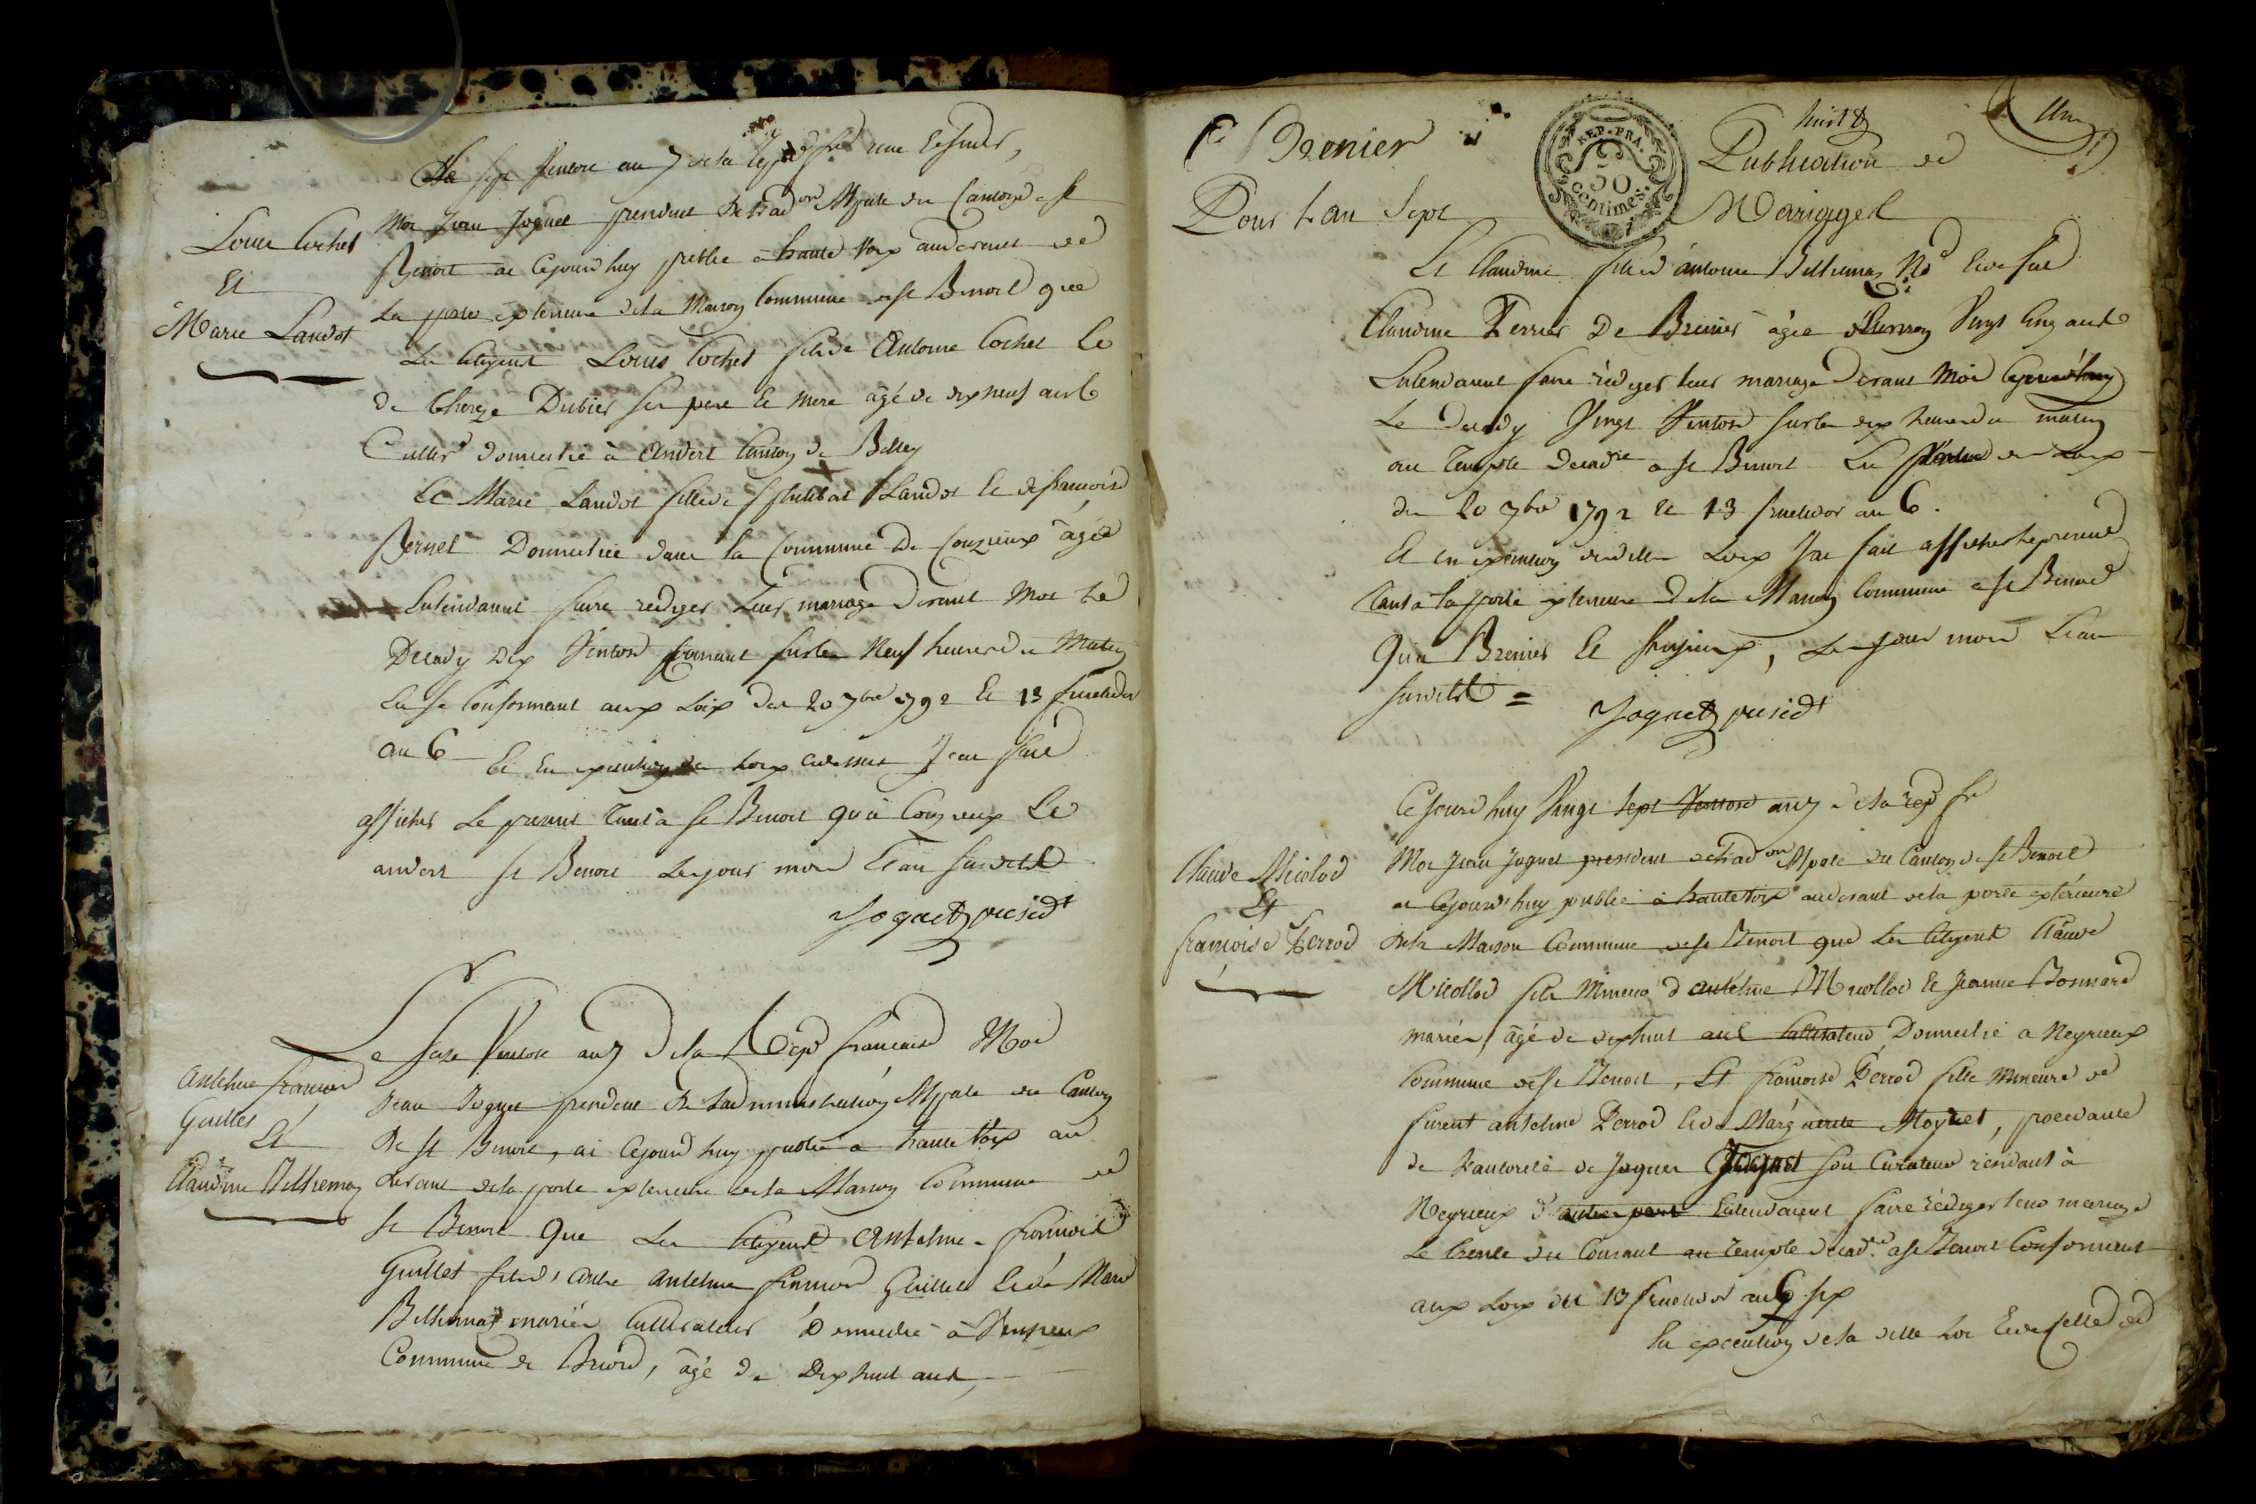 Le sept Ventose an 7 de la rep. fr. une
Louis Cochet
Et
Marie Landot
Moi Jean Joguet president De l'ad.on Mpale du Canton de St
Benoit ai Cejourd'huy publié à haute Voix audevant de
La porte exterieure de la Maison Commune de St Benoit que
Les Citoyens Louis Cochet fils de Antoine Cochet Et
de Thereze Dubier ses pere Et mere âgé de dix neuf ans
Cultiv. domicilié à Andert Canton de Belley
Et Marie Landot fille de Philibert Landot Et de françoise
Bernet Domiciliée dans la Commune De Conzieux âgée
Entendant faire rediger Leur mariage Devant Moi Le
Decady dix Ventose sur les Neuf heures du Matin
En se Conformant aux Loix des 20 7bre 1792 Et 13 fructidor
an 6 Et En execution des Loix cidessus J'ai fait
afficher Le present Tant à St Benoit qu'à Conzieux Et
andert St Benoit Les jour mois Et an susdits
Joguet presidt
Le seize Ventose an 7 De la Rep. francaise Moi
anthelme francois
Guillet
Et
Claudine Billiemaz
Jean Joguet president De L'administration Mpale du Canton
De St Benoit, ai Cejourd'huy publié à haute Voix au
devant de la porte exterieure de la Maison Commune de
St Benoit Que Les Citoyens Anthelme francois
Guillet fils d'autre anthelme francois Guillet Et de Marie
Billiemaz mariés Cultivateur Domicilié à
Commune de Briord, âgé de Dix huit ans,
C. Brenier
Pour L'an Sept
REP. FRA.
50
centimes.
huit
Publication de
Mariages
Et Claudine fille d'antoine Billiemaz Et de
Claudine Perrier De Brenier âgée d'Environ Vingt Cinq ans
Entendant faire rédiger leur mariage Devant Moi
Le Decady Vingt Ventose sur les dix heures du matin
au Temple Decad.re a St Benoit En des Loix
du 20 7bre 1792 Et 13 fructidor an 6.
Et En execution desdites Loix J'ai fait afficher le present
Tant à la porte exterieure De la Maison Commune a St Benoit
Qu'a Brenier Et, Les jour mois Et an
susdits =
Joguet presidt
Cejourd'huy Vingt sept Ventose an 7 de la rep. fr.
Claude Micolod
Et
francoise Perrod
Moi Jean Joguet president de l'ad.on Mpale du Canton de St Benoit
ai Cejourd'huy publié à haute Voix audevant de la porte extérieure
de la Maison Commune de St Benoit que Les Citoyens Claude
Micollod fils Mineur d'antelme Micollod Et Jeanne Bonnard
mariés, âgé de dixhuit ans Cultivateur Domicilié a Neyrieux
Commune de St Benoit, Et francoise Perrod fille Mineure de
furent anthelme Perrod Et de Marguerite Moynet, procedante
de L'autorité de Joguet son Curateur résidant à
Neyrieux d'autre part Entendant faire rédiger leur mariage
Le Trente du Courant au Temple décad.re a St Benoit Conformant
aux Loix du 13 fructidor an 6 six
En execution de la dite Loi Et de Celle de